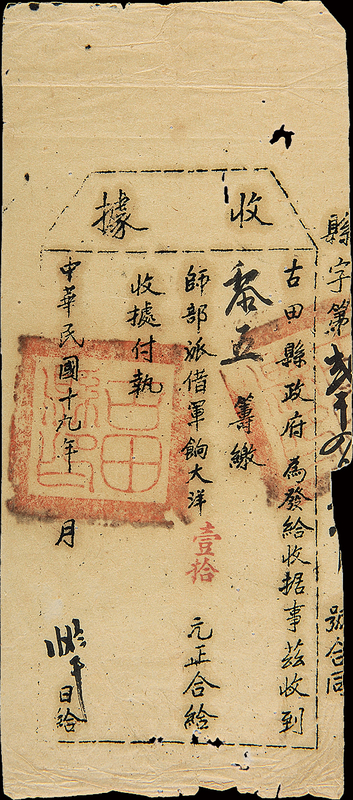 收據
縣字第
號合同
古田縣政府為發給收据事茲收到
五籌繳
師部派借軍餉大洋壹拾元正合給
收據付執
中華民國十九年 月 日給
古田縣印